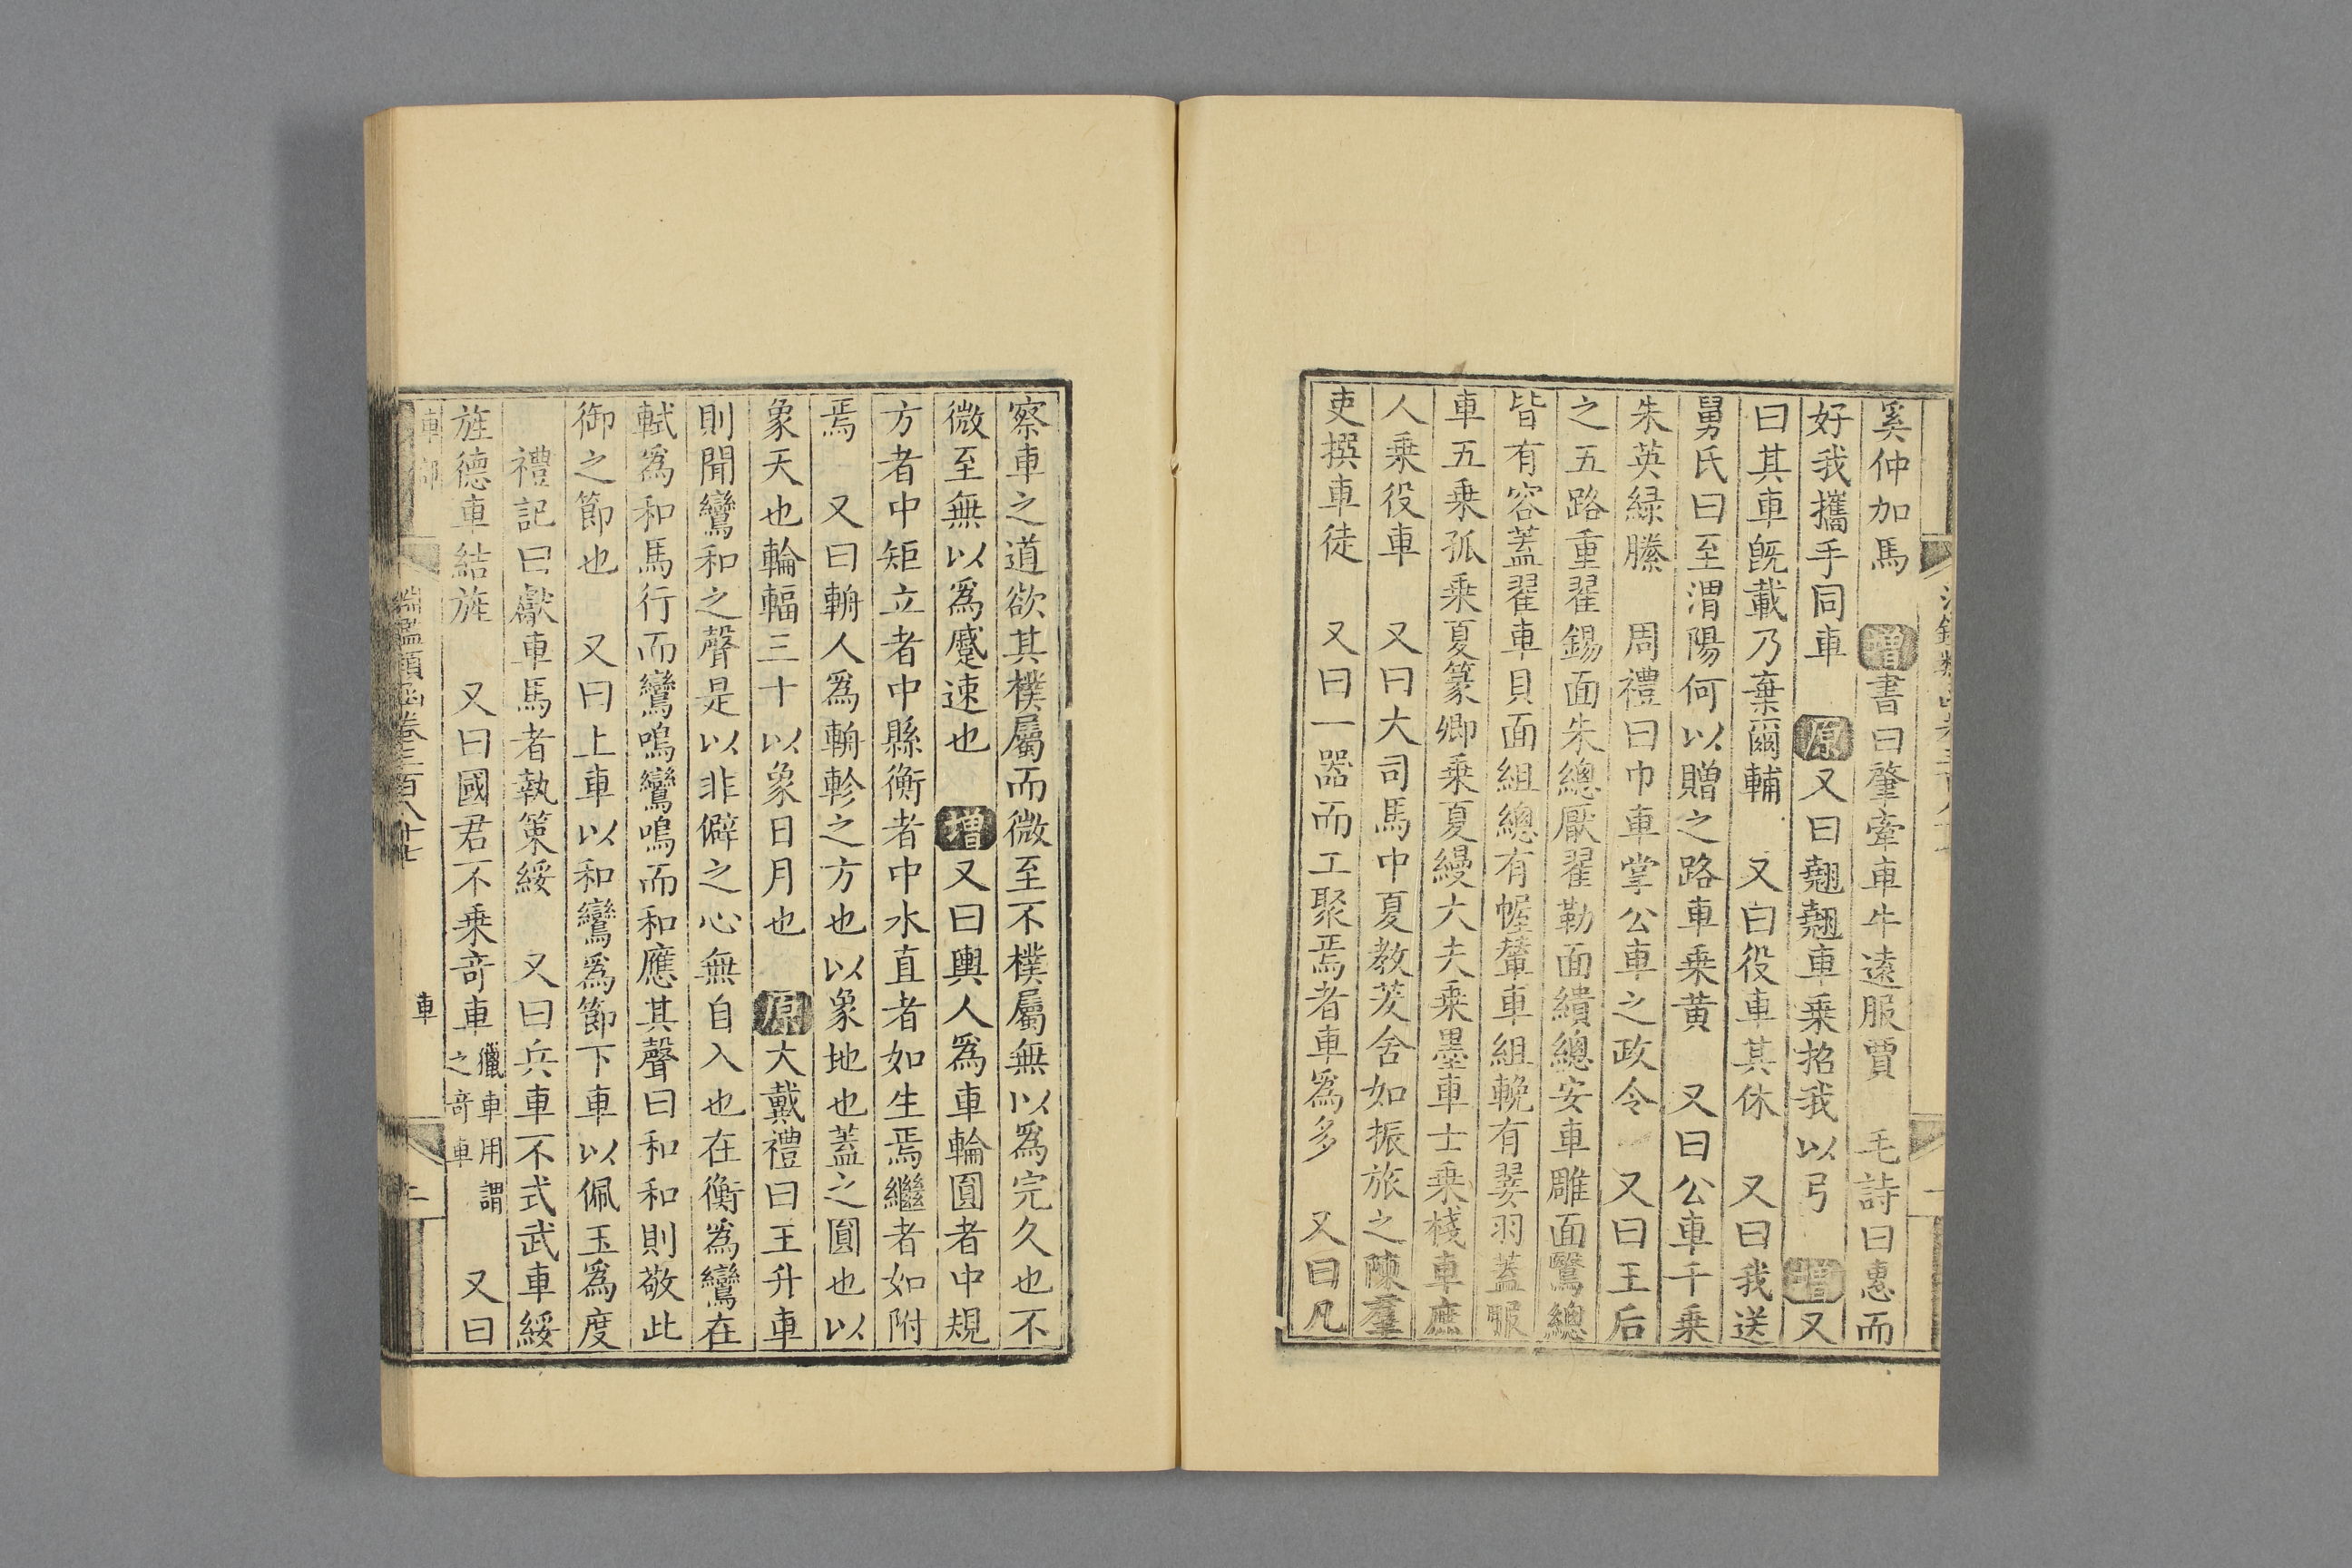 奚仲加馬　增書曰肇牽車牛遠服賈　毛詩曰惠而
好我攜手同車　原又曰翹翹車乗招我以弓　增又
曰其車旣載乃棄爾輔　又曰役車其休　又曰我送
舅氏曰至渭陽何以贈之路車乗黄　又曰公車千乗
朱英緑縢　周禮曰巾車掌公車之政令　又曰王后
之五路重翟錫面朱總厭翟勒面繢總安車雕面鷖總
皆有容蓋翟車貝面組總有幄輦車組輓有翣羽蓋服
車五乗孤乗夏篆卿乗夏縵大夫乗墨車士乗棧車庶
人乗役車　又曰大司馬中夏教茇舍如振旅之陳羣
吏撰車徒　又曰一器而工聚焉者車爲多　又曰凡
察車之道欲其樸屬而微至不樸屬無以爲完久也不
微至無以爲蹙速也　增又曰輿人爲車輪圓者中規
方者中矩立者中縣衡者中水直者如生焉繼者如附
焉　又曰輈人爲輈軫之方也以象地也蓋之圓也以
象天也輪輻三十以象日月也　原大戴禮曰王升車
則聞鸞和之聲是以非僻之心無自入也在衡爲鸞在
軾爲和馬行而鸞鳴鸞鳴而和應其聲曰和和則敬此
御之節也　又曰上車以和鸞爲節下車以佩玉爲度
禮記曰獻車馬者執策綏　又曰兵車不式武車綏
旌德車結旌　又曰國君不乗奇車獵車用謂之奇車　又曰
淵鑑類函卷三百八十七　車